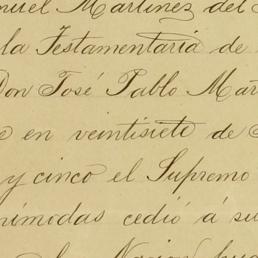 nuel Martinez del
la Testamentaria de
Don José Pablo Mar
e en veintisiete de
y cinco el Supremo
nímodas cedió á su